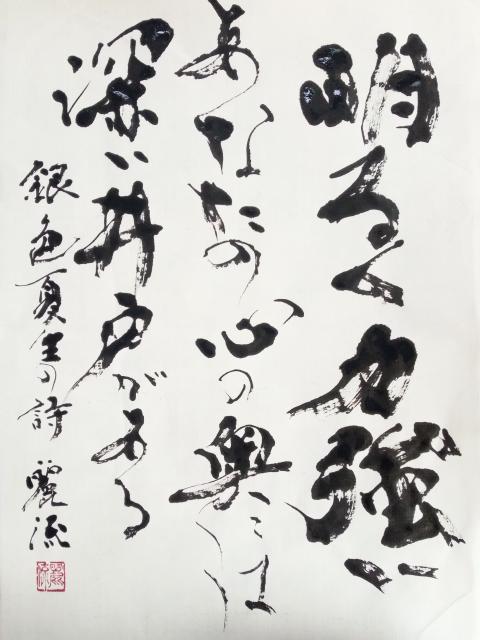 明るく力強い
あなたの心の奥には
深い井戸がある
銀色夏生の詩 麗流